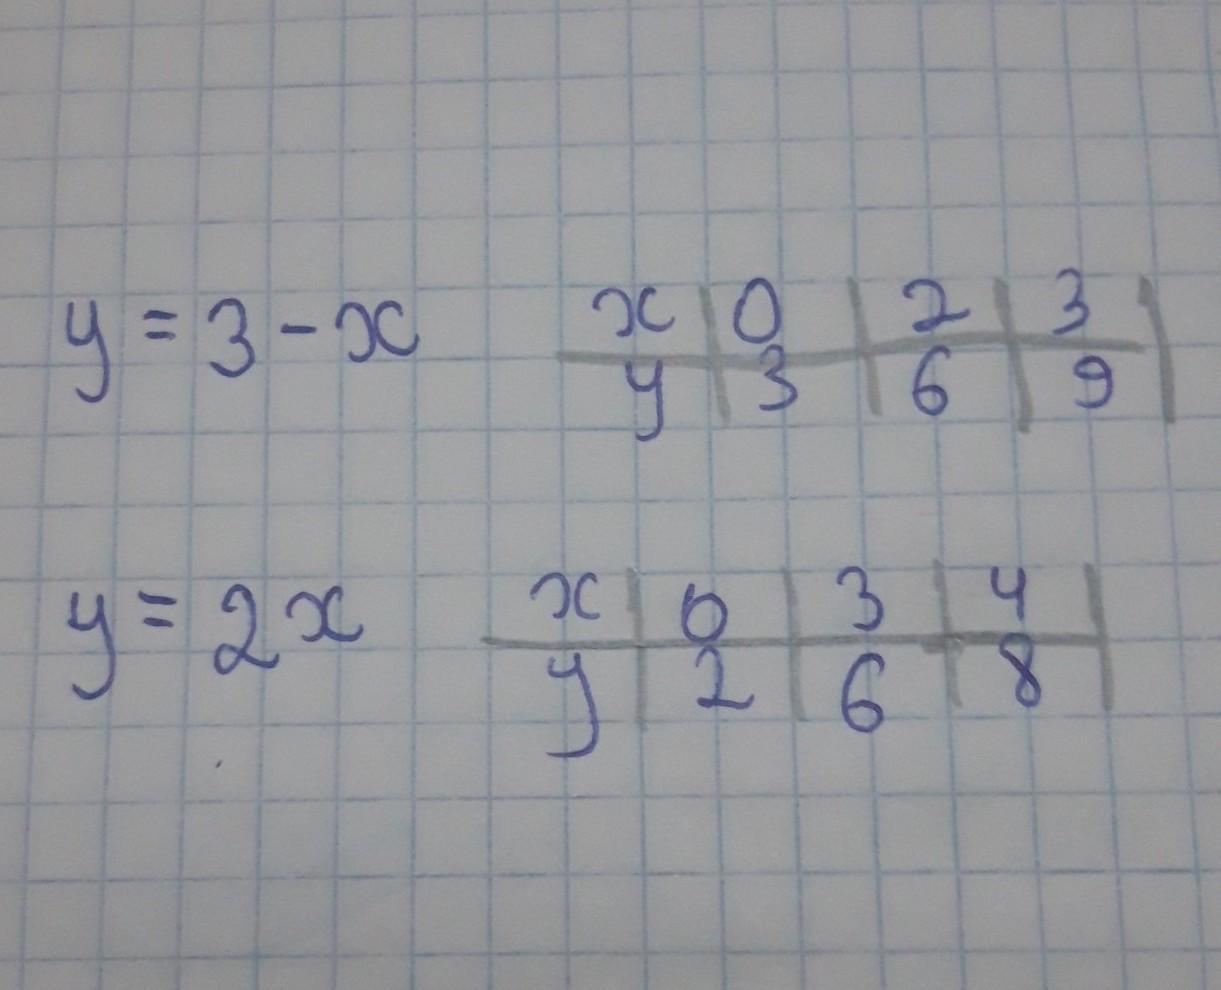 y = 3 - x
x 0 2 3
y 3 6 9
y = 2x
x 0 3 4
y 2 6 8